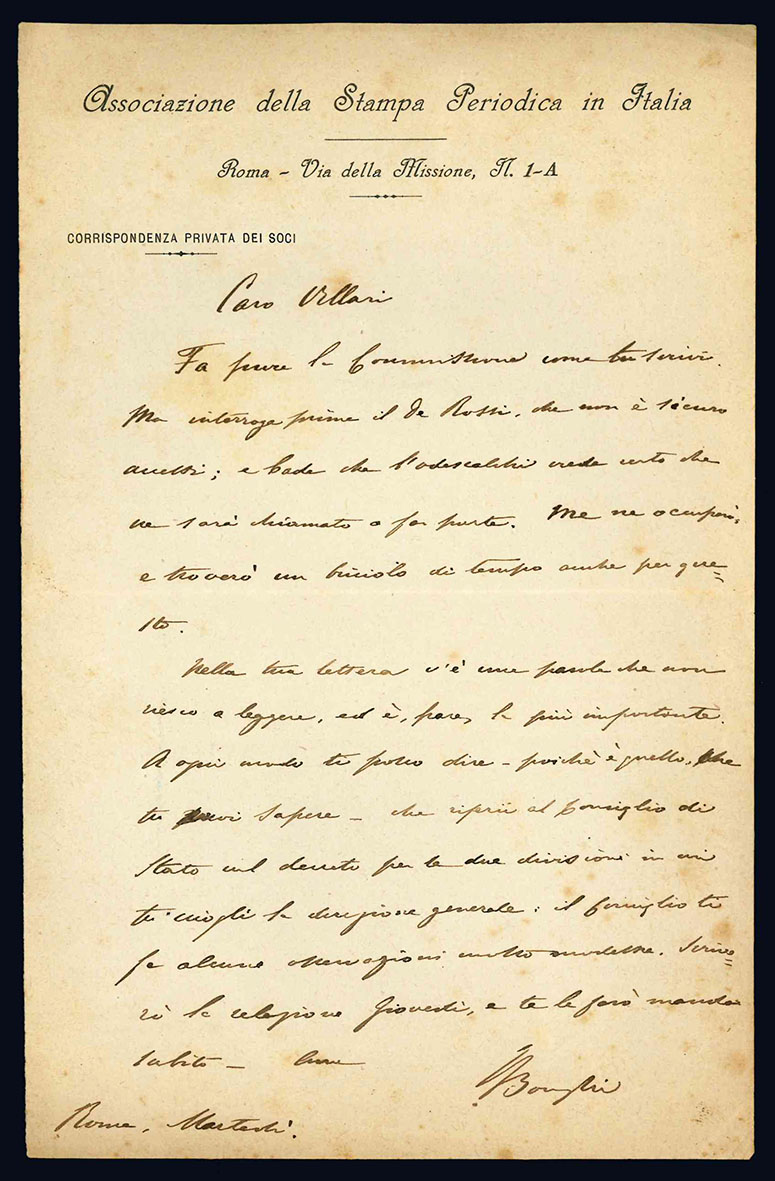 Associazione della Stampa Periodica in Italia
Roma - Via della Missione, N. 1-A
CORRISPONDENZA PRIVATA DEI SOCI
Caro Villari
Fa pure la Commissione come tu scrivi.
Ma interroga prima il De Rossi, che non è sicuro
accetti; e bada che l'Odescalchi crede certo che
ne sarà chiamato a far parte. Me ne occuperò,
e troverò un briciolo di tempo anche per que=
sto.
Nella tua lettera v'è una parola che non
riesco a leggere, ed è, pare, la più importante.
A ogni modo ti posso dire - poichè è quello, che
tu vuoi sapere - che riferii al Consiglio di
Stato sul decreto per le due divisioni in cui
tu sciogli la direzione generale: il Consiglio ti
fa alcune osservazioni molto modeste. Scrive=
rò la relazione Giovedì, e te la farò mandar
subito -
RBonghi
Roma, Martedì.